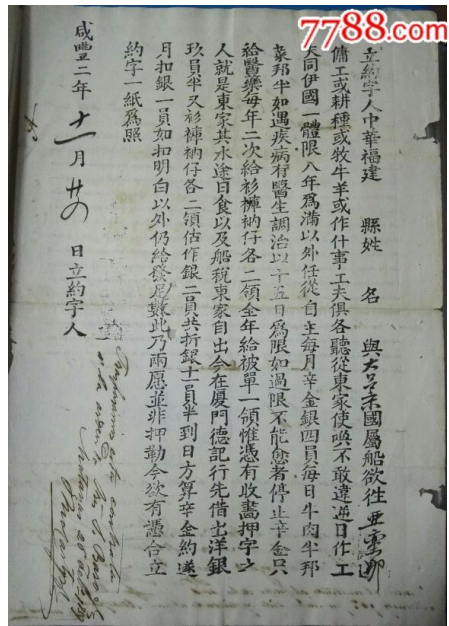 7788.com
立約字人中華福建　縣姓　名　與大呂宋國屬船欲往亜灣那
傭工或耕種或牧牛羊或作什事工夫俱各聽從東家使喚不敢違逆日作工
夫同伊國一體限八年為滿以外任從自主每月辛金銀四員每日牛肉半邦
菜邦半如遇疾病有醫生調治以十五日為限如過限不能愈者停止辛金只
給醫藥每年二次給衫褲衲仔各二領全年給被單一領惟憑有收畵押字之
人就是東家其水途日食以及船稅東家自出今在厦門德記行先借出洋銀
玖員半又衫褲衲仔各二領估作銀二員共折銀十一員半到日方算辛金約送
月扣銀一員如扣明白以外仍給發足數此乃兩愿並非押勒今欲有憑合立
約字一紙為照
咸豐二年十一月廿四日立約字人
este contrato